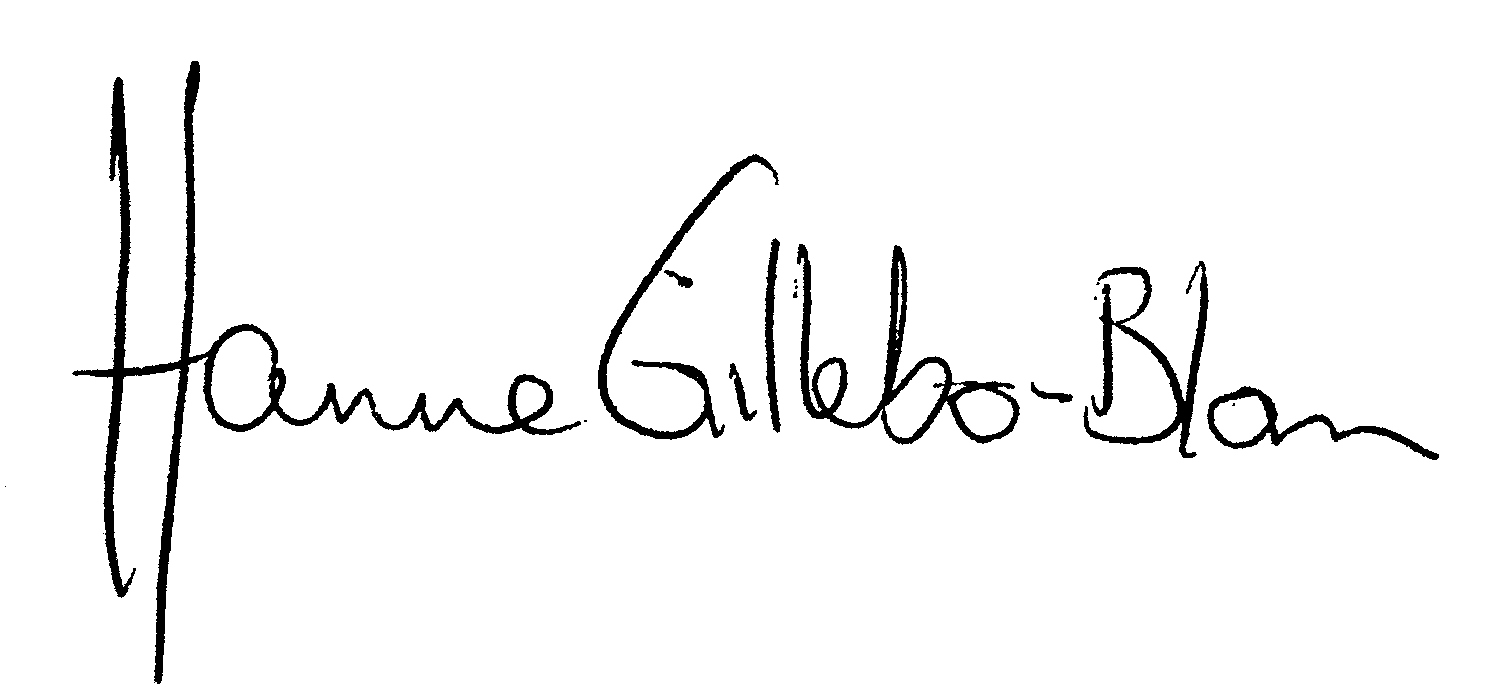 Hanne Gillebo-Blom